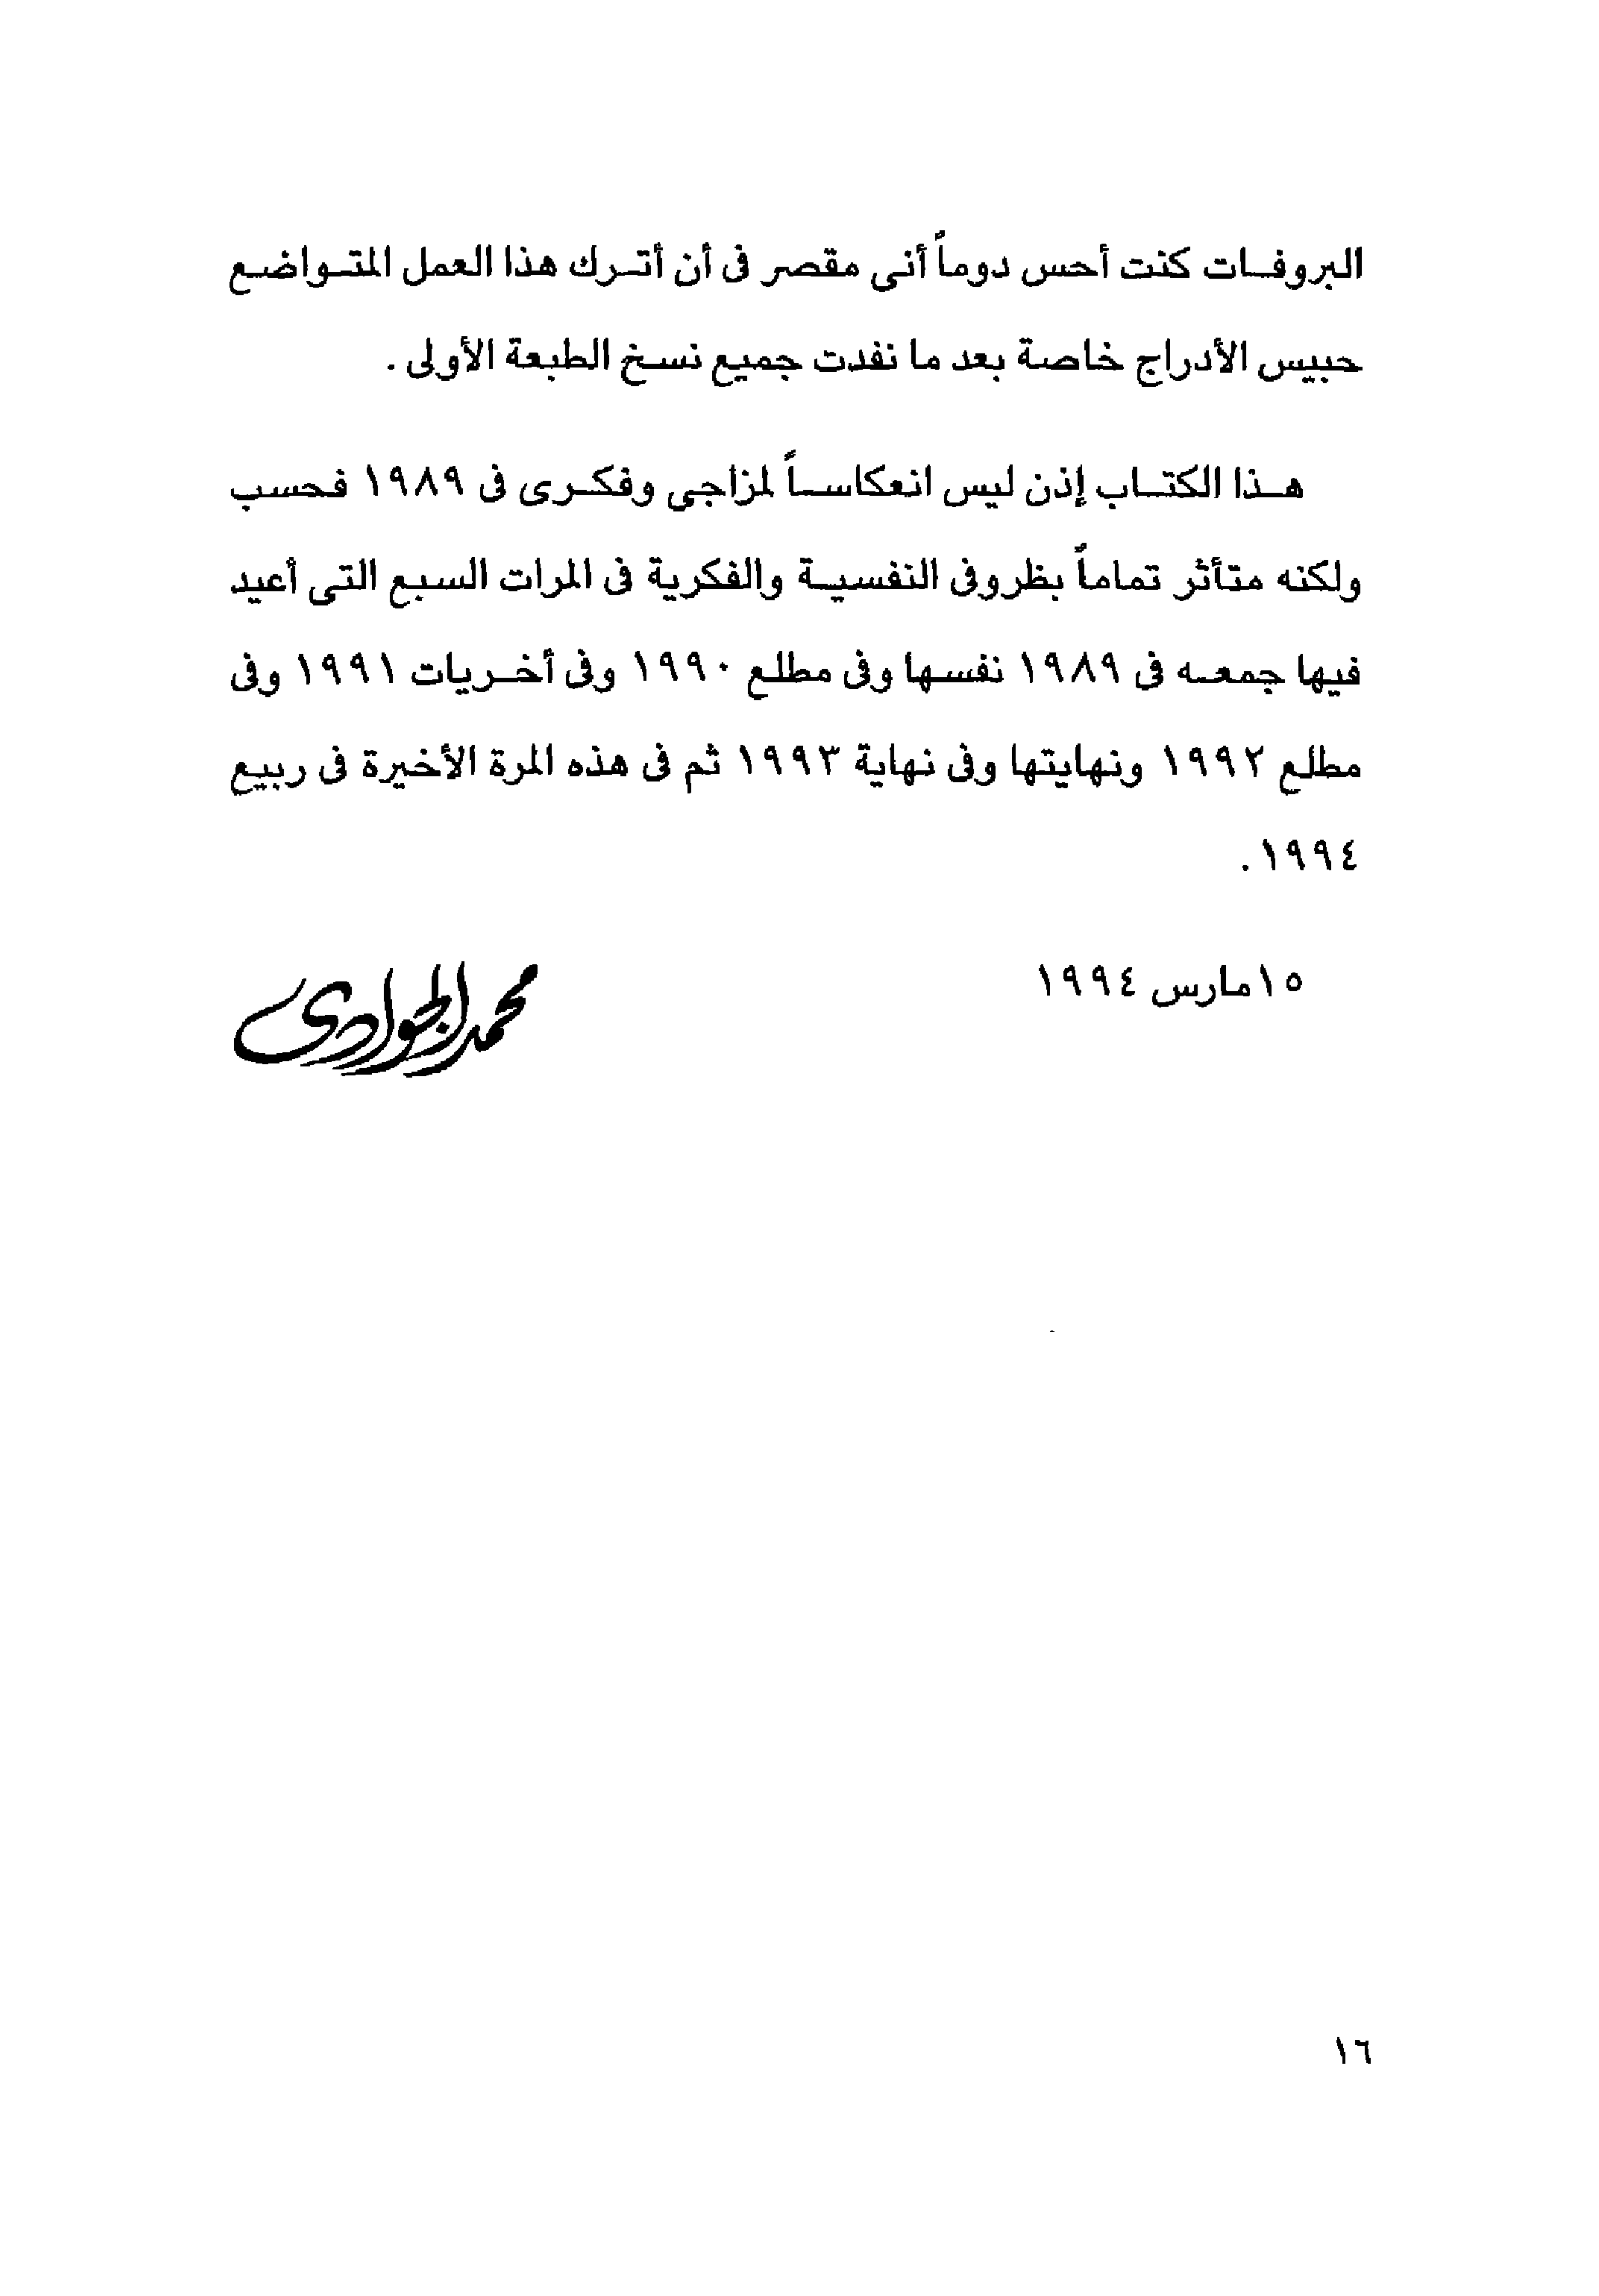 البروفات كنت أحس دوماً أنى مقصر فى أن أترك هذا العمل المتواضع
حبيس الأدراج خاصة بعد ما نفدت جميع نسخ الطبعة الأولى .
هذا الكتاب إذن ليس انعكاساً لمزاجي وفكرى فى ١٩٨٩ فحسب
ولكنه متأثر تماماً بظروفى النفسية والفكرية فى المرات السبع التى أعيد
فيها جمعه فى ١٩٨٩ نفسها وفى مطلع ١٩٩٠ وفى أخريات ١٩٩١ وفى
مطلع ١٩٩٢ ونهايتها وفى نهاية ١٩٩٣ ثم فى هذه المرة الأخيرة فى ربيع
١٩٩٤ .
١٥ مارس ١٩٩٤
محمد الجوادى
١٦